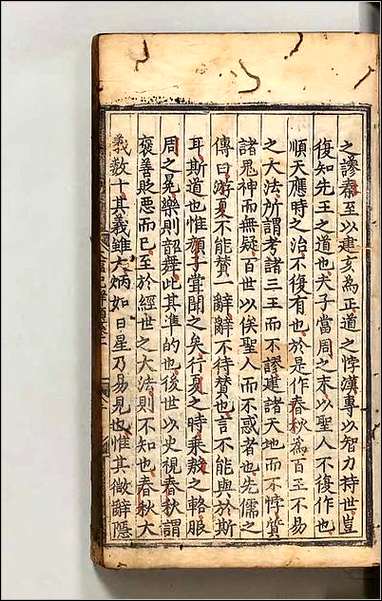 之謬秦至以建亥為正道之悖漢專以智力持世豈
復知先王之道也夫子當周之末以聖人不復作也
順天應時之治不復有也於是作春秋為百王不易
之大法所謂考諸三王而不謬建諸天地而不悖質
諸鬼神而無疑百世以俟聖人而不惑者也先儒之
傳曰游夏不能賛一辭辭不待賛也言不能與於斯
耳斯道也惟顔子甞聞之矣行夏之時乘殷之輅服
周之冕樂則韶舞此其凖的也後世以史視春秋謂
褒善貶惡而已至於經世之大法則不知也春秋大
義数十其義雖大炳如日星乃易見也惟其微辭隠